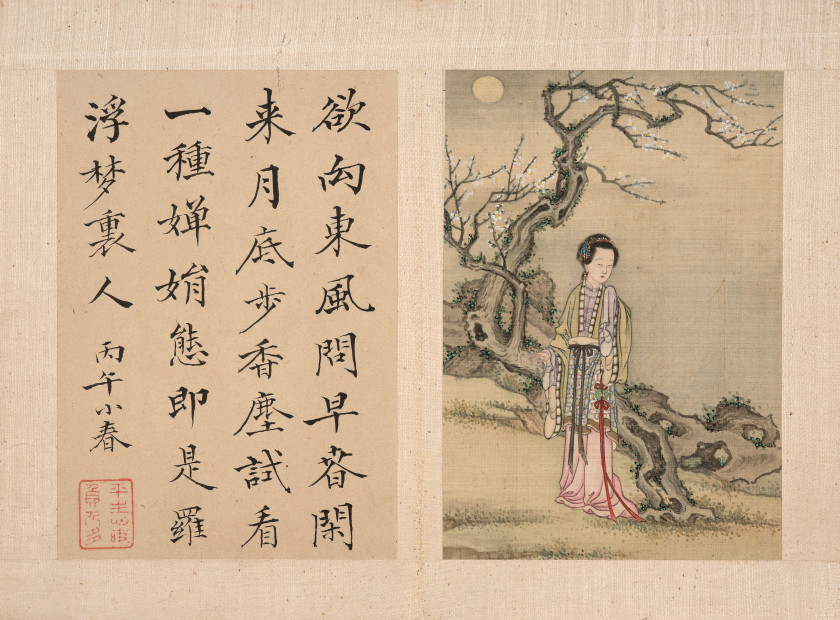 欲向東風問早春閑
来月底步香塵試看
一種嬋娟態即是羅
浮梦裏人 丙午小春